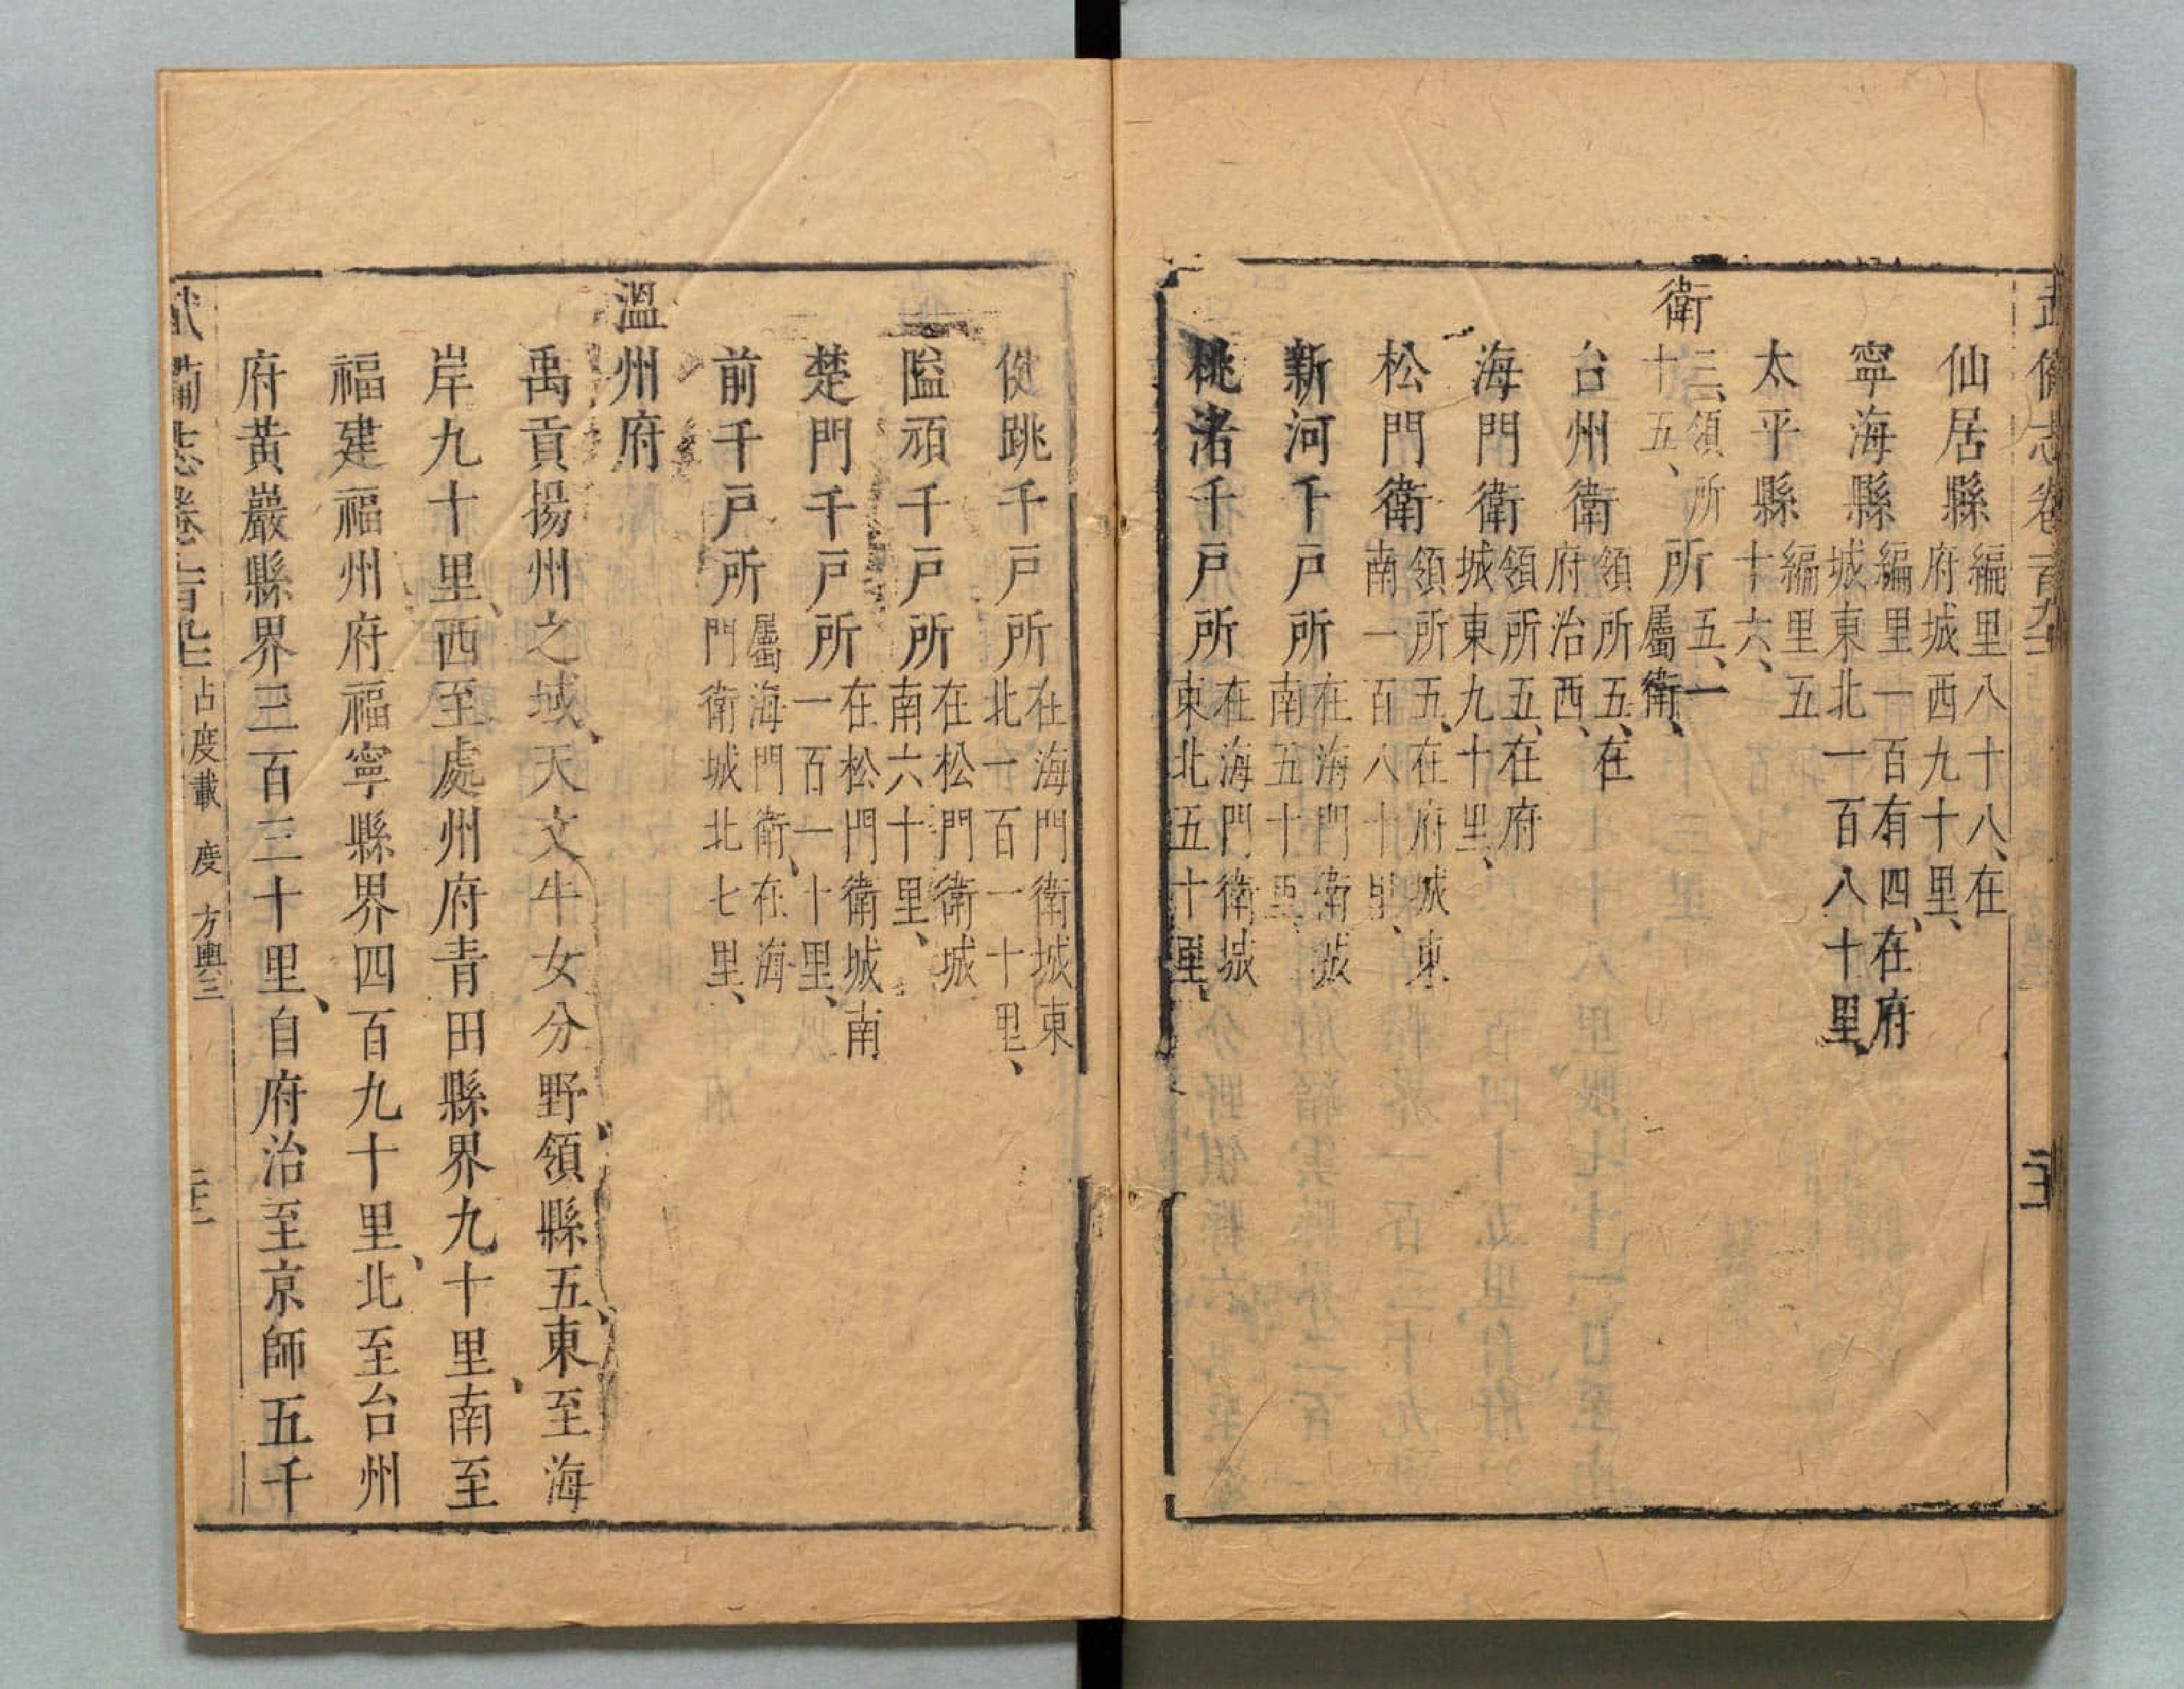 武備志卷一百九十三
仙居縣編里八十八、在府城西九十里、
寧海縣編里一百有四、在府城東北一百八十里、
太平縣編里五十六、
衛三、領所十五、所五、一屬衛、
台州衛領所五、在府治西、
海門衛領所五、在府城東九十里、
松門衛領所五、在府城東南一百八十里、
新河千戶所在海門衛城南五十里、
桃渚千戶所在海門衛城東北五十里、
跳千戶所在海門衛城東北一百一十里、
隘頑千戶所在松門衛城南六十里、
楚門千戶所在松門衛城南一百一十里、
前千戶所屬海門衛、在海門衛城北七里、
溫州府
禹貢揚州之域、天文牛女分野、領縣五、東至海
岸九十里、西至處州府青田縣界九十里、南至
福建福州府福寧縣界四百九十里、北至台州
府黃巖縣界三百三十里、自府治至京師五千
武備志卷一百九十三 占度載 度 方輿三